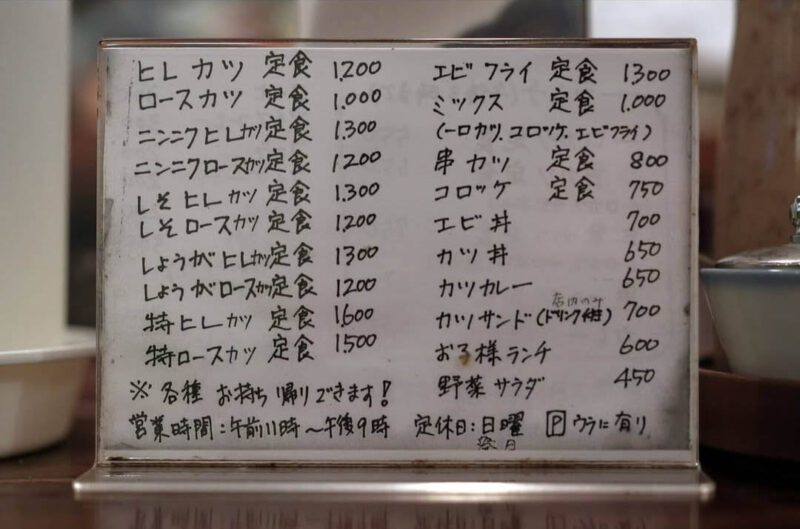 ヒレカツ 定食 1,200
ロースカツ 定食 1,000
ニンニクヒレカツ定食 1,300
ニンニクロースカツ定食 1200
しそヒレカツ 定食 1,300
しそロースカツ 定食 1200
しょうがヒレカツ定食 1300
しょうがロースカツ定食 1200
特ヒレカツ 定食 1,600
特ロースカツ 定食 1,500
※各種 お持ち帰りできます!
エビフライ 定食 1300
ミックス 定食 1,000
(一口カツ、コロッケ、エビフライ)
串カツ 定食 800
コロッケ 定食 750
エビ丼 700
カツ丼 650
カツカレー 650
店内のみ
カツサンド(ドリンク付) 700
お子様ランチ 600
野菜サラダ 450
営業時間:午前11時〜午後9時 定休日:日曜 P ウラに有り
祭日